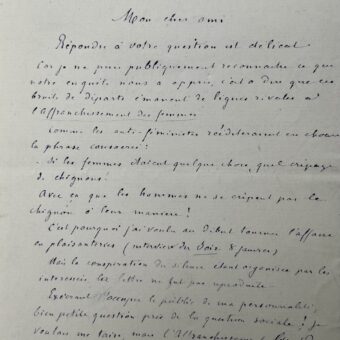 Mon cher ami
Répondre à votre question est délicat
Car je ne puis publiquement reconnaître ce que
notre enquête nous a appris, c'est à dire que ces
bruits de départs émanent de ligues rivales à
l'affranchissement des femmes
Comme les anti-féministes rééditeraient en chœur
la phrase consacrée :
- Si les femmes étaient quelque chose, quel crêpage
de chignons !
Avec ça que les hommes ne se crêpent pas le
chignon à leur manière !
C'est pourquoi j'ai voulu au début tourner l'affaire
en plaisanteries (interview du Soir 8 janvier)
Mais la conspiration du silence étant organisée par les
intéressés la lettre ne fut pas reproduite
occuper le public de ma personnalité,
bien petite question près de la question sociale ! Je
voulais me taire, mais l'Affranchissement